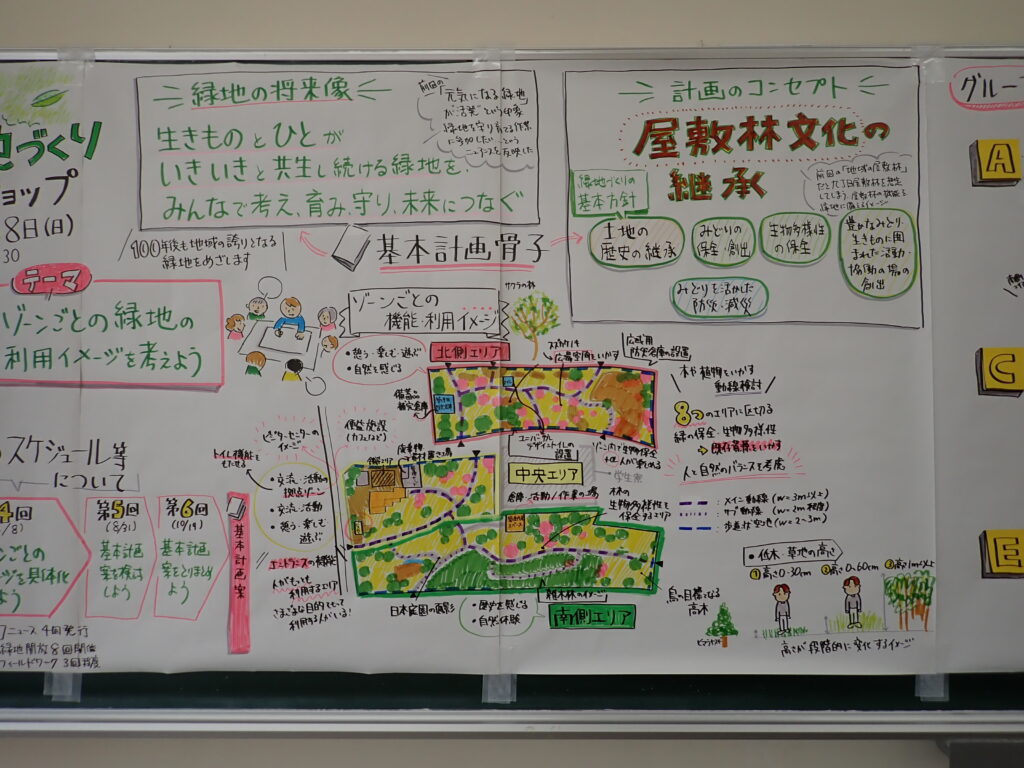 づくり
ョップ
8日(日)
30
テーマ
ゾーンごとの緑地の
利用イメージを考えよう
スケジュール等
について
4回
ンごとの
ージを具体化
よう
第5回
(8/31)
基本計画
案を検討
しよう
第6回
(10/19)
基本計画
案をとりまとめ
よう
基本計画案
ニュース 4回発行
緑地開放 8回開催
フィールドワーク 3回程度
緑地の将来像
生きものとひとが
いきいきと共生し続ける緑地を、
みんなで考え、育み、守り、未来につなぐ
前回の
「元気になる緑地」
が活発という印象
緑地を守り育てる作業
に参加したい、という
ニュアンスを反映した
100年後も地域の誇りとなる
緑地をめざします
基本計画骨子
計画のコンセプト
屋敷林文化の
継承
前回の「地域の屋敷林」
だと
緑地づくりの
基本方針
土地の
歴史の継承
みどりの
保全・創出
生物多様性
の保全
豊かなみどり・
生きものに囲
まれた活動・
協働の場の
創出
みどりを活かした
防災・減災
ゾーンごとの
機能・利用イメージ
サクラの林
北側エリア
・憩う・楽しむ・遊ぶ
・自然を感じる
広場空間をいかす
広域用
防災倉庫の設置
備蓄品
ユニバーサル
デザイントイレの
設置
中央エリア
倉庫・活動/作業の場
林の
生物多様性を
保全するエリア
学生寮
便益施設
(カフェなど)
ビジターセンターの
イメージ
トイレ機能を
もたせる
・交流・活動の
拠点ゾーン
・交流・活動
・憩う・楽しむ
遊ぶ
エントランスの機能
人がもっとも
利用するエリア
さまざまな目的をもって
利用する人がいる!
日本庭園の面影
・歴史を感じる
・自然体験
雑木林のイメージ
南側エリア
木や植物をいかす
動線検討
8つのエリアに区切る
緑の保全・生物多様性
既存資源をいかす
人と自然のバランスを考慮
:メイン動線 (w=3m以上)
:サブ動線 (w=2m程度)
:歩道状空地 (w=2~3m)
・低木・草地の高さ
①高さ0~30cm
②高さ0~60cm
③高さ1m以上
鳥の目標になる
高木
高さが段階的に変化するイメージ
グルー
A
C
E